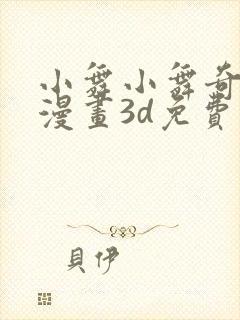 小舞小舞奇
漫畫3d免費
貝伊